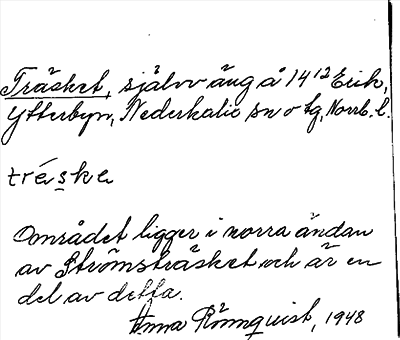 Träsket, självv äng å 14¹² Erik,
Ytterbyn, Nederkalix sn o tg, Norrb. l.
tré̱ske
Området ligger i norra ändan
av Strömsträsket och är en
del av detta.
Anna Rönnquist, 1948